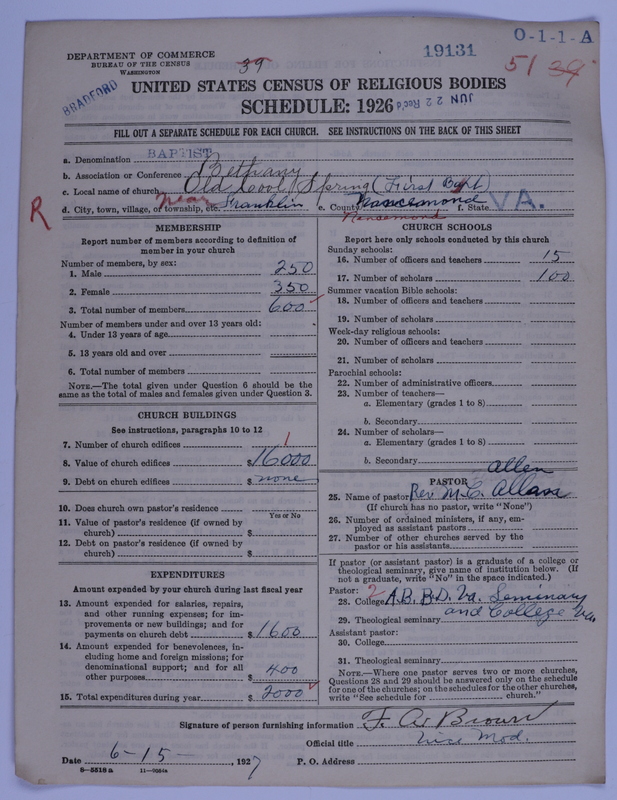 O-1-1-A
19131
DEPARTMENT OF COMMERCE
BUREAU OF THE CENSUS
WASHINGTON
39
51 39
BRADFORD
UNITED STATES CENSUS OF RELIGIOUS BODIES
SCHEDULE: 1926
JUN 22 Rec'd
FILL OUT A SEPARATE SCHEDULE FOR EACH CHURCH. SEE INSTRUCTIONS ON THE BACK OF THIS SHEET
a. Denomination BAPTIST
b. Association or Conference Bethany
c. Local name of church Old Cool Spring (First Bapt)
R
d. City, town, village, or township, etc. near Franklin e. County Nansemond f. State VA.
Nansemond
MEMBERSHIP
Report number of members according to definition of
member in your church
Number of members, by sex:
1. Male 250
2. Female 350
3. Total number of members 600
Number of members under and over 13 years old:
4. Under 13 years of age
5. 13 years old and over
6. Total number of members
NOTE.—The total given under Question 6 should be the
same as the total of males and females given under Question 3.
CHURCH BUILDINGS
See instructions, paragraphs 10 to 12
7. Number of church edifices 1
8. Value of church edifices $16000
9. Debt on church edifices $none
10. Does church own pastor's residence
Yes or No
11. Value of pastor's residence (if owned by
church) $
12. Debt on pastor's residence (if owned by
church) $
EXPENDITURES
Amount expended by your church during last fiscal year
13. Amount expended for salaries, repairs,
and other running expenses; for im-
provements or new buildings; and for
payments on church debt $1600
14. Amount expended for benevolences, in-
cluding home and foreign missions; for
denominational support; and for all
other purposes $400
15. Total expenditures during year $2000
CHURCH SCHOOLS
Report here only schools conducted by this church
Sunday schools:
16. Number of officers and teachers 15
17. Number of scholars 100
Summer vacation Bible schools:
18. Number of officers and teachers
19. Number of scholars
Week-day religious schools:
20. Number of officers and teachers
21. Number of scholars
Parochial schools:
22. Number of administrative officers
23. Number of teachers—
a. Elementary (grades 1 to 8)
b. Secondary
24. Number of scholars—
a. Elementary (grades 1 to 8)
b. Secondary
Allen
PASTOR
25. Name of pastor Rev. M. C.
(If church has no pastor, write "None")
26. Number of ordained ministers, if any, em-
ployed as assistant pastors
27. Number of other churches served by the
pastor or his assistants
If pastor (or assistant pastor) is a graduate of a college or
theological seminary, give name of institution below. (If
not a graduate, write "No" in the space indicated.)
Pastor: 2
28. College A.B. B.D. Va. Seminary
and College Va.
29. Theological seminary
Assistant pastor:
30. College
31. Theological seminary
NOTE.—Where one pastor serves two or more churches,
Questions 28 and 29 should be answered only on the schedule
for one of the churches; on the schedules for the other churches,
write "See schedule for church."
Signature of person furnishing information F. A. Brown
Official title Vice Mod.
Date 6-15-, 1927 P. O. Address
8-5518a 11-9564a